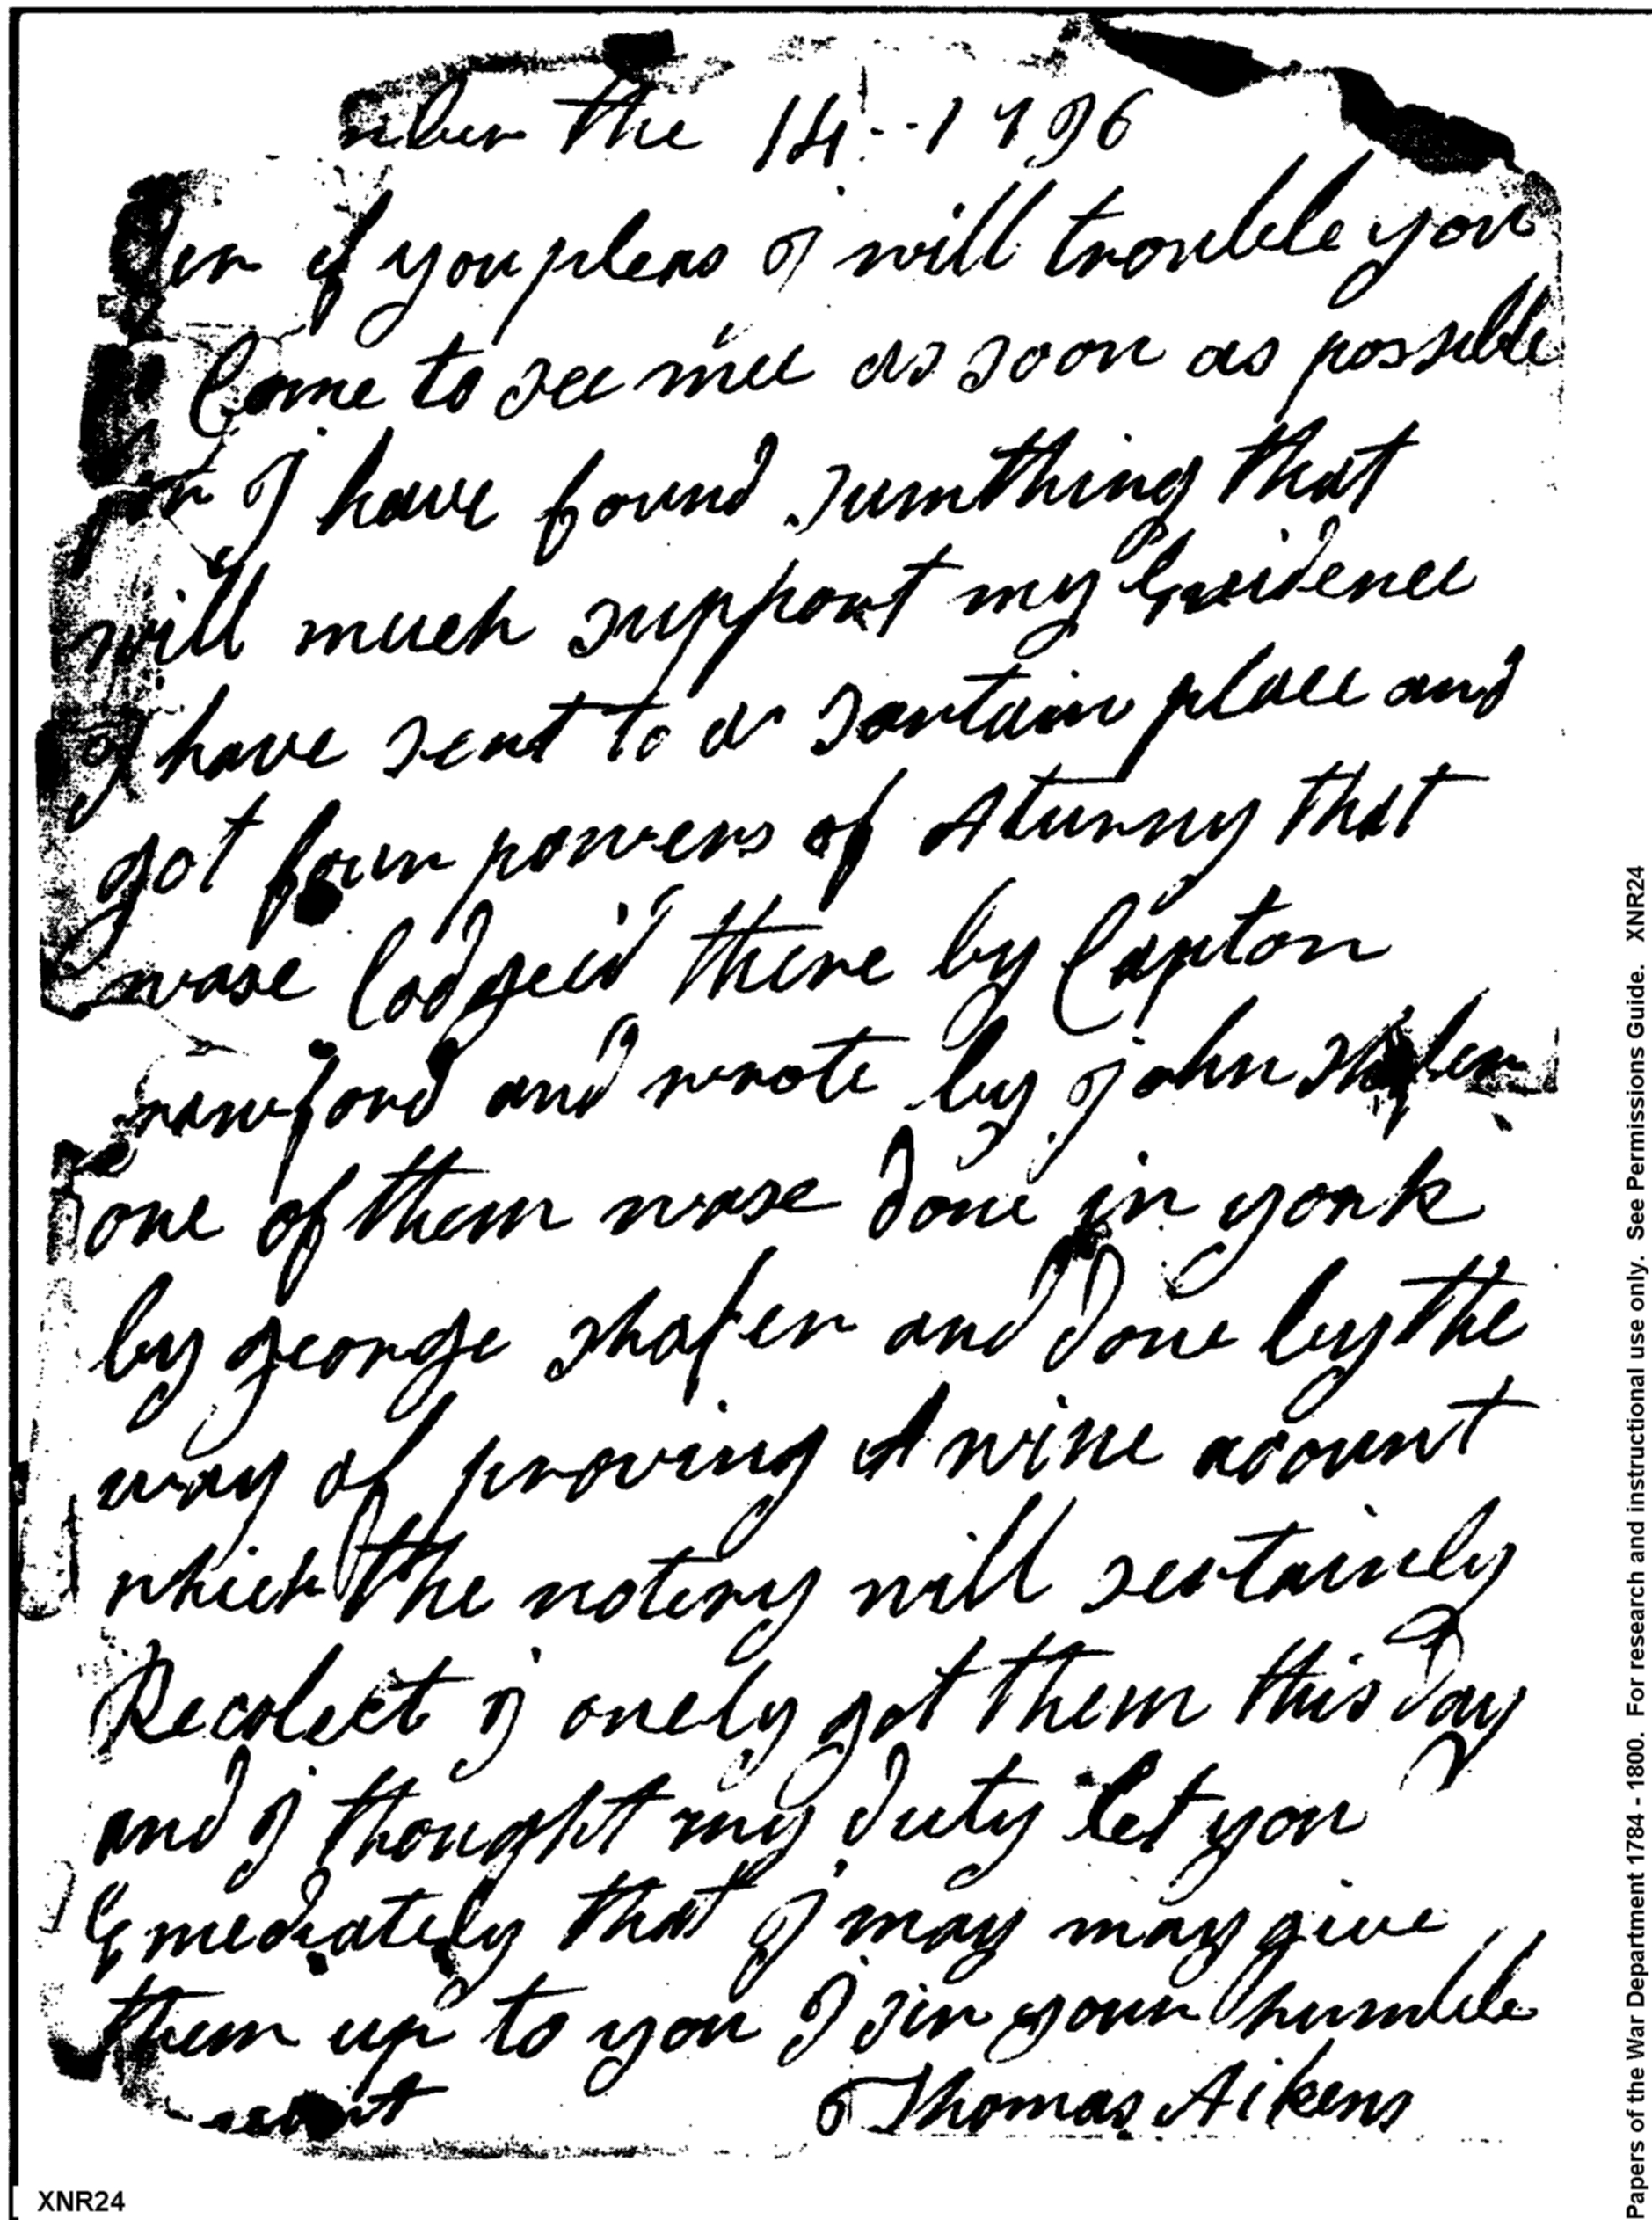 mber the 14 - - 1796
Sir if you pleas I will trouble you
Come to see mee as soon as possible
for I have found sumthing that
will much support my Evidence
I have sent to a Sartain place and
got four powers of Aturny that
wase lodgeed there by Capton
Crawford and wrote by John
one of them wase done in york
by george shafer and done by the
way of proving A wine acount
which the notery will sertainly
Recolect I onely got them this day
and I thought my duty let you
Emediately that I may may give
them up to you I Sir your humble
Thomas Aikens
XNR24
Papers of the War Department 1784 - 1800. For research and instructional use only. See Permissions Guide. XNR24